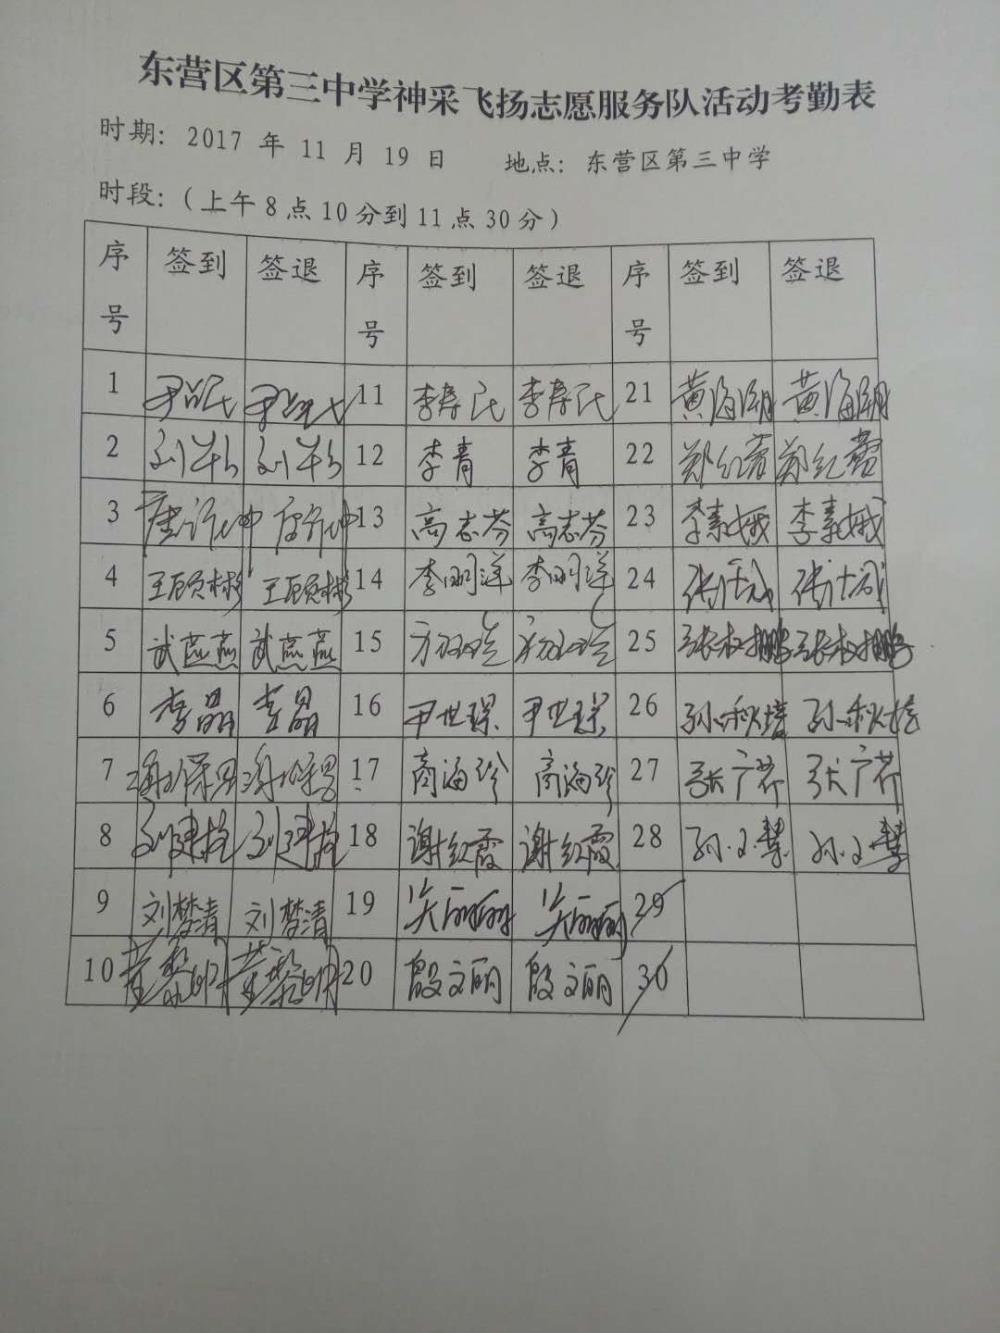 东营区第三中学神采飞扬志愿服务队活动考勤表
时期：2017 年 11 月 19 日 地点：东营区第三中学
时段：（上午8点10分到11点30分）
序号 签到 签退 序号 签到 签退 序号 签到 签退
1 11 李寿民 李寿民 21 黄海潮 黄海潮
2 12 李青 李青 22 郑红霞 郑红霞
3 13 高志芬 高志芬 23 李素娥 李素娥
4 王顾彬 王顾彬 14 李明洋 李明洋 24
5 武燕燕 武燕燕 15 25
6 李晶 李晶 16 尹世琛 尹世琛 26 孙秋 孙秋
7 17 商海珍 商海珍 27 张广芹 张广芹
8 刘建 刘建 18 谢红霞 谢红霞 28 孙文慧 孙文慧
9 刘梦清 刘梦清 19 吴丽丽 吴丽丽 29
10 董黎明 董黎明 20 殷文丽 殷文丽 30